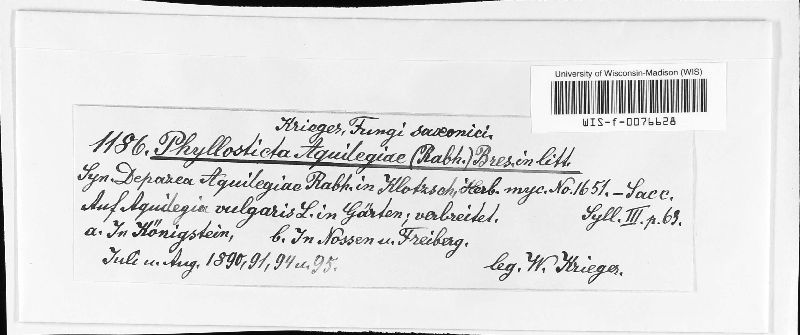 University of Wisconsin-Madison (WIS)
WIS-f-0076628
Krieger, Fungi saxonici.
1186. Phyllosticta Aquilegiae (Rabh.) Bres. in litt.
Syn. Depazea Aquilegiae Rabh. in Klotzsch, Herb. myc. No. 1651. – Sacc.
Syll. III. p. 63.
Auf Aquilegia vulgaris L. in Gärten, verbreitet.
a. In Königstein, b. In Nossen u. Freiberg.
Juli u. Aug. 1890, 91, 94 u. 95.
leg. W. Krieger.